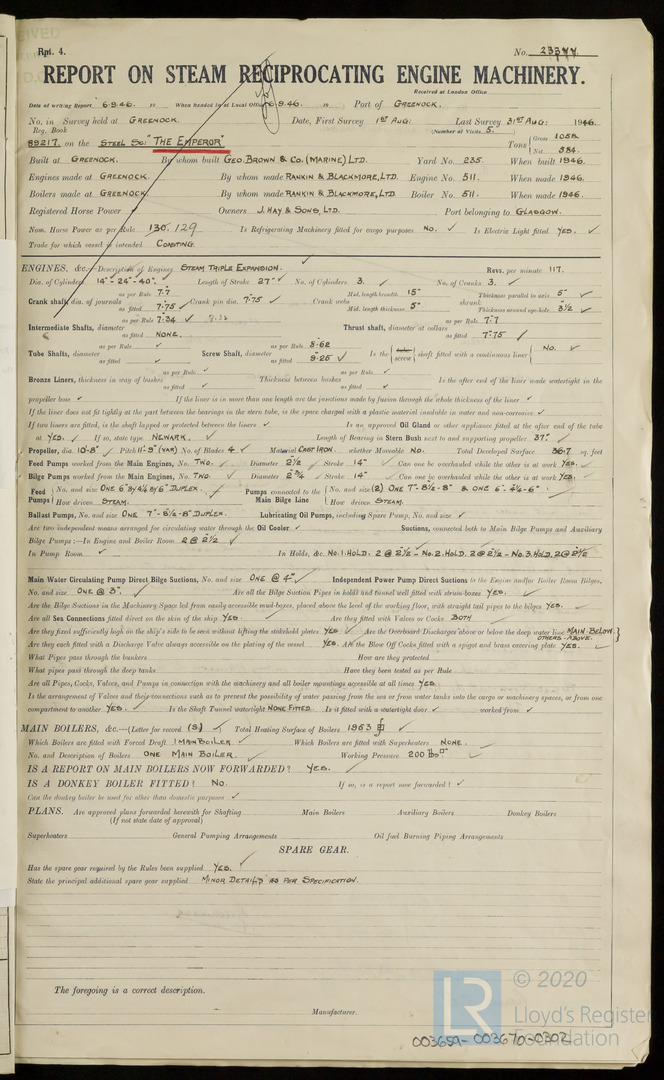 Rpt. 4.
No. 23377.
REPORT ON STEAM RECIPROCATING ENGINE MACHINERY.
Received at London Office
Date of writing Report 6.9.46. 19 When handed in at Local Office 6.9.46. 19 Port of GREENOCK.
No. in Survey held at GREENOCK. Date, First Survey 1ST AUG: Last Survey 31ST AUG: 1946.
Reg. Book (Number of Visits 5.
89217. on the STEEL SC: "THE EMPEROR" Tons Gross 1058. Net 384.
Built at GREENOCK. By whom built GEO. BROWN & CO. (MARINE) LTD. Yard No. 235. When built 1946.
Engines made at GREENOCK. By whom made RANKIN & BLACKMORE, LTD. Engine No. 511. When made 1946.
Boilers made at GREENOCK. By whom made RANKIN & BLACKMORE, LTD. Boiler No. 511. When made 1946.
Registered Horse Power Owners J. HAY & SONS, LTD. Port belonging to GLASGOW.
Nom. Horse Power as per Rule 130. 129 Is Refrigerating Machinery fitted for cargo purposes NO. Is Electric Light fitted YES.
Trade for which vessel is intended COASTING.
ENGINES, &c.—Description of Engines STEAM TRIPLE EXPANSION. Revs. per minute 117.
Dia. of Cylinders 14"- 24"- 40". Length of Stroke 27" No. of Cylinders 3. No. of Cranks 3.
Crank shaft, dia. of journals as per Rule 7.7 as fitted 7.75 Crank pin dia. 7.75 Crank webs Mid. length breadth 15" Mid. length thickness 5" shrunk Thickness parallel to axis 5" Thickness around eye-hole 3½
Intermediate Shafts, diameter as per Rule 7.34 as fitted NONE. Thrust shaft, diameter at collars as per Rule 7.7 as fitted 7.75
Tube Shafts, diameter as per Rule as fitted Screw Shaft, diameter as per Rule 8.62 as fitted 9.25 Is the {tube/screw} shaft fitted with a continuous liner NO.
Bronze Liners, thickness in way of bushes as per Rule as fitted Thickness between bushes as per Rule as fitted Is the after end of the liner made watertight in the
propeller boss If the liner is in more than one length are the junctions made by fusion through the whole thickness of the liner
If the liner does not fit tightly at the part between the bearings in the stern tube, is the space charged with a plastic material insoluble in water and non-corrosive
If two liners are fitted, is the shaft lapped or protected between the liners Is an approved Oil Gland or other appliance fitted at the after end of the tube
at YES. If so, state type NEWARK. Length of Bearing in Stern Bush next to and supporting propeller 37"
Propeller, dia. 10'-8" Pitch 11'-9" (VAR) No. of Blades 4 Material CAST IRON. whether Moveable NO. Total Developed Surface 36.7 sq. feet
Feed Pumps worked from the Main Engines, No. TWO. Diameter 2½ Stroke 14" Can one be overhauled while the other is at work YES.
Bilge Pumps worked from the Main Engines, No. TWO. Diameter 2¾ Stroke 14" Can one be overhauled while the other is at work YES.
Feed Pumps {No. and size ONE 6" BY 4¼ BY 6" DUPLEX. How driven STEAM. Pumps connected to the Main Bilge Line {No. and size (2) ONE 7"- 8½- 8" & ONE 6"- 4¼- 6" How driven STEAM.
Ballast Pumps, No. and size ONE 7"- 8½- 8" DUPLEX. Lubricating Oil Pumps, including Spare Pump, No. and size
Are two independent means arranged for circulating water through the Oil Cooler Suctions, connected both to Main Bilge Pumps and Auxiliary
Bilge Pumps:—In Engine and Boiler Room 2 @ 2½
In Pump Room In Holds, &c. NO. 1. HOLD. 2 @ 2½ - NO. 2. HOLD. 2 @ 2½ - NO. 3. HOLD. 2 @ 2½
Main Water Circulating Pump Direct Bilge Suctions, No. and size ONE @ 4" Independent Power Pump Direct Suctions to the Engine and/or Boiler Room Bilges,
No. and size ONE @ 3". Are all the Bilge Suction Pipes in holds and tunnel well fitted with strum-boxes YES.
Are the Bilge Suctions in the Machinery Space led from easily accessible mud-boxes, placed above the level of the working floor, with straight tail pipes to the bilges YES.
Are all Sea Connections fitted direct on the skin of the ship YES. Are they fitted with Valves or Cocks BOTH
Are they fixed sufficiently high on the ship's side to be seen without lifting the stokehold plates YES Are the Overboard Discharges above or below the deep water line MAIN-BELOW. OTHERS-ABOVE.
Are they each fitted with a Discharge Valve always accessible on the plating of the vessel YES. Are the Blow Off Cocks fitted with a spigot and brass covering plate YES.
What Pipes pass through the bunkers How are they protected
What pipes pass through the deep tanks Have they been tested as per Rule
Are all Pipes, Cocks, Valves, and Pumps in connection with the machinery and all boiler mountings accessible at all times YES.
Is the arrangement of Valves and their connections such as to prevent the possibility of water passing from the sea or from water tanks into the cargo or machinery spaces, or from one
compartment to another YES. Is the Shaft Tunnel watertight NONE FITTED. Is it fitted with a watertight door worked from
MAIN BOILERS, &c.—(Letter for record (S) Total Heating Surface of Boilers 1963
Which Boilers are fitted with Forced Draft 1 MAIN BOILER Which Boilers are fitted with Superheaters NONE.
No. and Description of Boilers ONE MAIN BOILER. Working Pressure 200 lbs □"
IS A REPORT ON MAIN BOILERS NOW FORWARDED? YES.
IS A DONKEY BOILER FITTED? NO. If so, is a report now forwarded?
Can the donkey boiler be used for other than domestic purposes
PLANS. Are approved plans forwarded herewith for Shafting Main Boilers Auxiliary Boilers Donkey Boilers
(If not state date of approval)
Superheaters General Pumping Arrangements Oil fuel Burning Piping Arrangements
SPARE GEAR.
Has the spare gear required by the Rules been supplied YES.
State the principal additional spare gear supplied MINOR DETAILS AS PER SPECIFICATION.
The foregoing is a correct description.
Manufacturer.
LR © 2020
Lloyd's Register
Foundation
003659-003670-0302